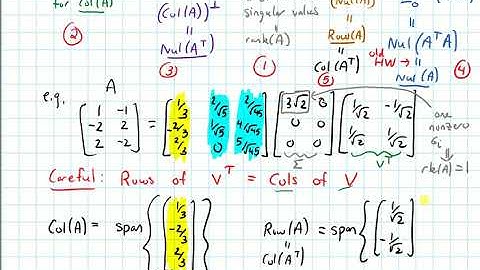 for Col(A)
(Col(A))⊥
singular values
(Nul(A))
=0
||
= rank(A)
||
||
②
Nul(Aᵀ)
Row(A)
Nul(AᵀA)
||
old
③
①
Col(Aᵀ)
HW →
||
⑤
Nul(A)
④
e.g. A
[1 -1; -2 2; 2 -2] = [1/3 2/√5 2/√45; -2/3 1/√5 4/√45; 2/3 0 5/√45] [3√2 0; 0 0; 0 0] [1/√2 -1/√2; 1/√2 1/√2]
Σ
Vᵀ
one nonzero σᵢ
⇓
rk(A)=1
Careful: Rows of Vᵀ = Cols of V
Col(A) = span{(1/3 -2/3 2/3)}
Row(A) = span{(1/√2 -1/√2)}
||
Col(Aᵀ)